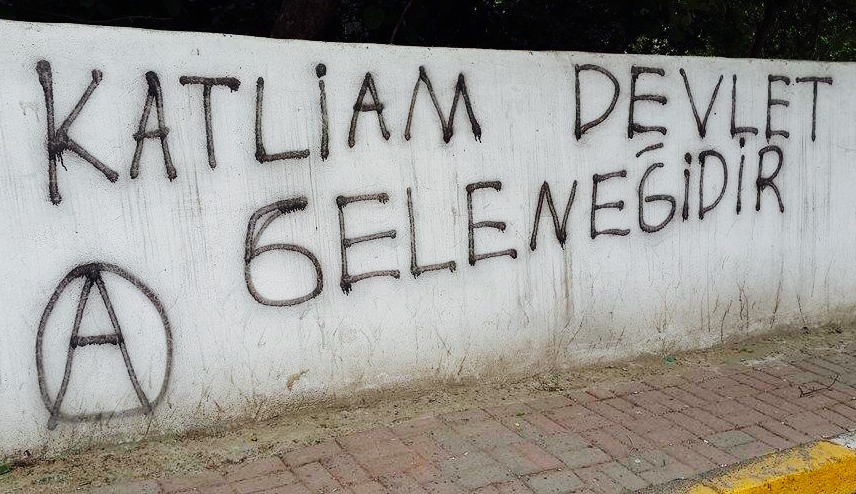 KATLiAM DEVLET
GELENEĞiDİR
A